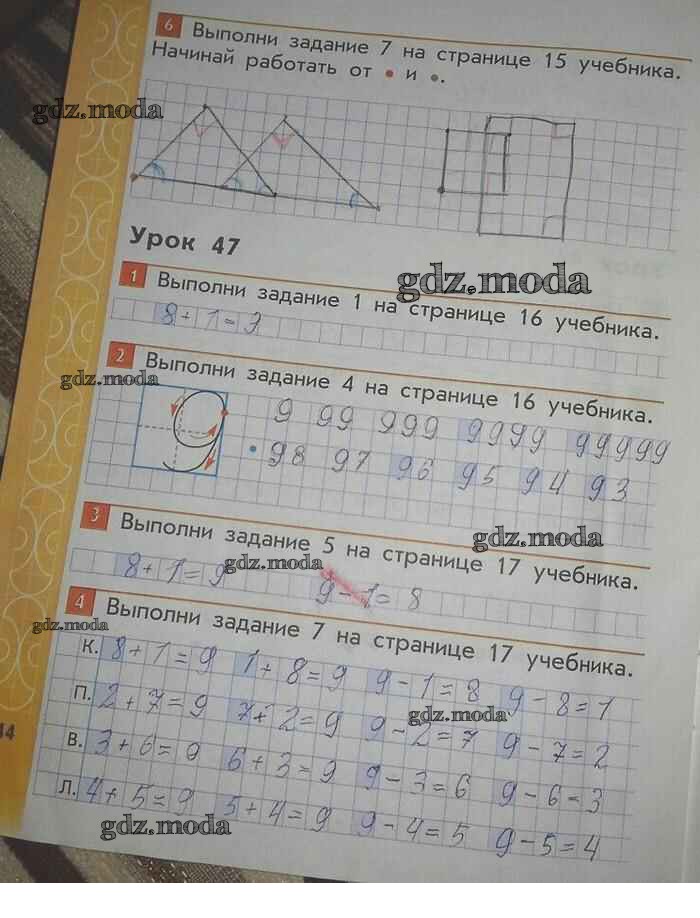 6 Выполни задание 7 на странице 15 учебника.
Начинай работать от • и •.
gdz.moda
Урок 47
gdz.moda
1 Выполни задание 1 на странице 16 учебника.
8+1=3
2 Выполни задание 4 на странице 16 учебника.
gdz.moda
9 9 99 999 9999 99999
98 97 96 95 94 93
3 Выполни задание 5 на странице 17 учебника.
gdz.moda
8+1=9 gdz.moda 9-1=8
4 Выполни задание 7 на странице 17 учебника.
gdz.moda
К. 8+1=9 1+8=9 9-1=8 9-8=1
П. 2+7=9 7+2=9 9-2=7 9-7=2
gdz.moda
В. 3+6=9 6+3=9 9-3=6 9-6=3
Л. 4+5=9 5+4=9 9-4=5 9-5=4
gdz.moda